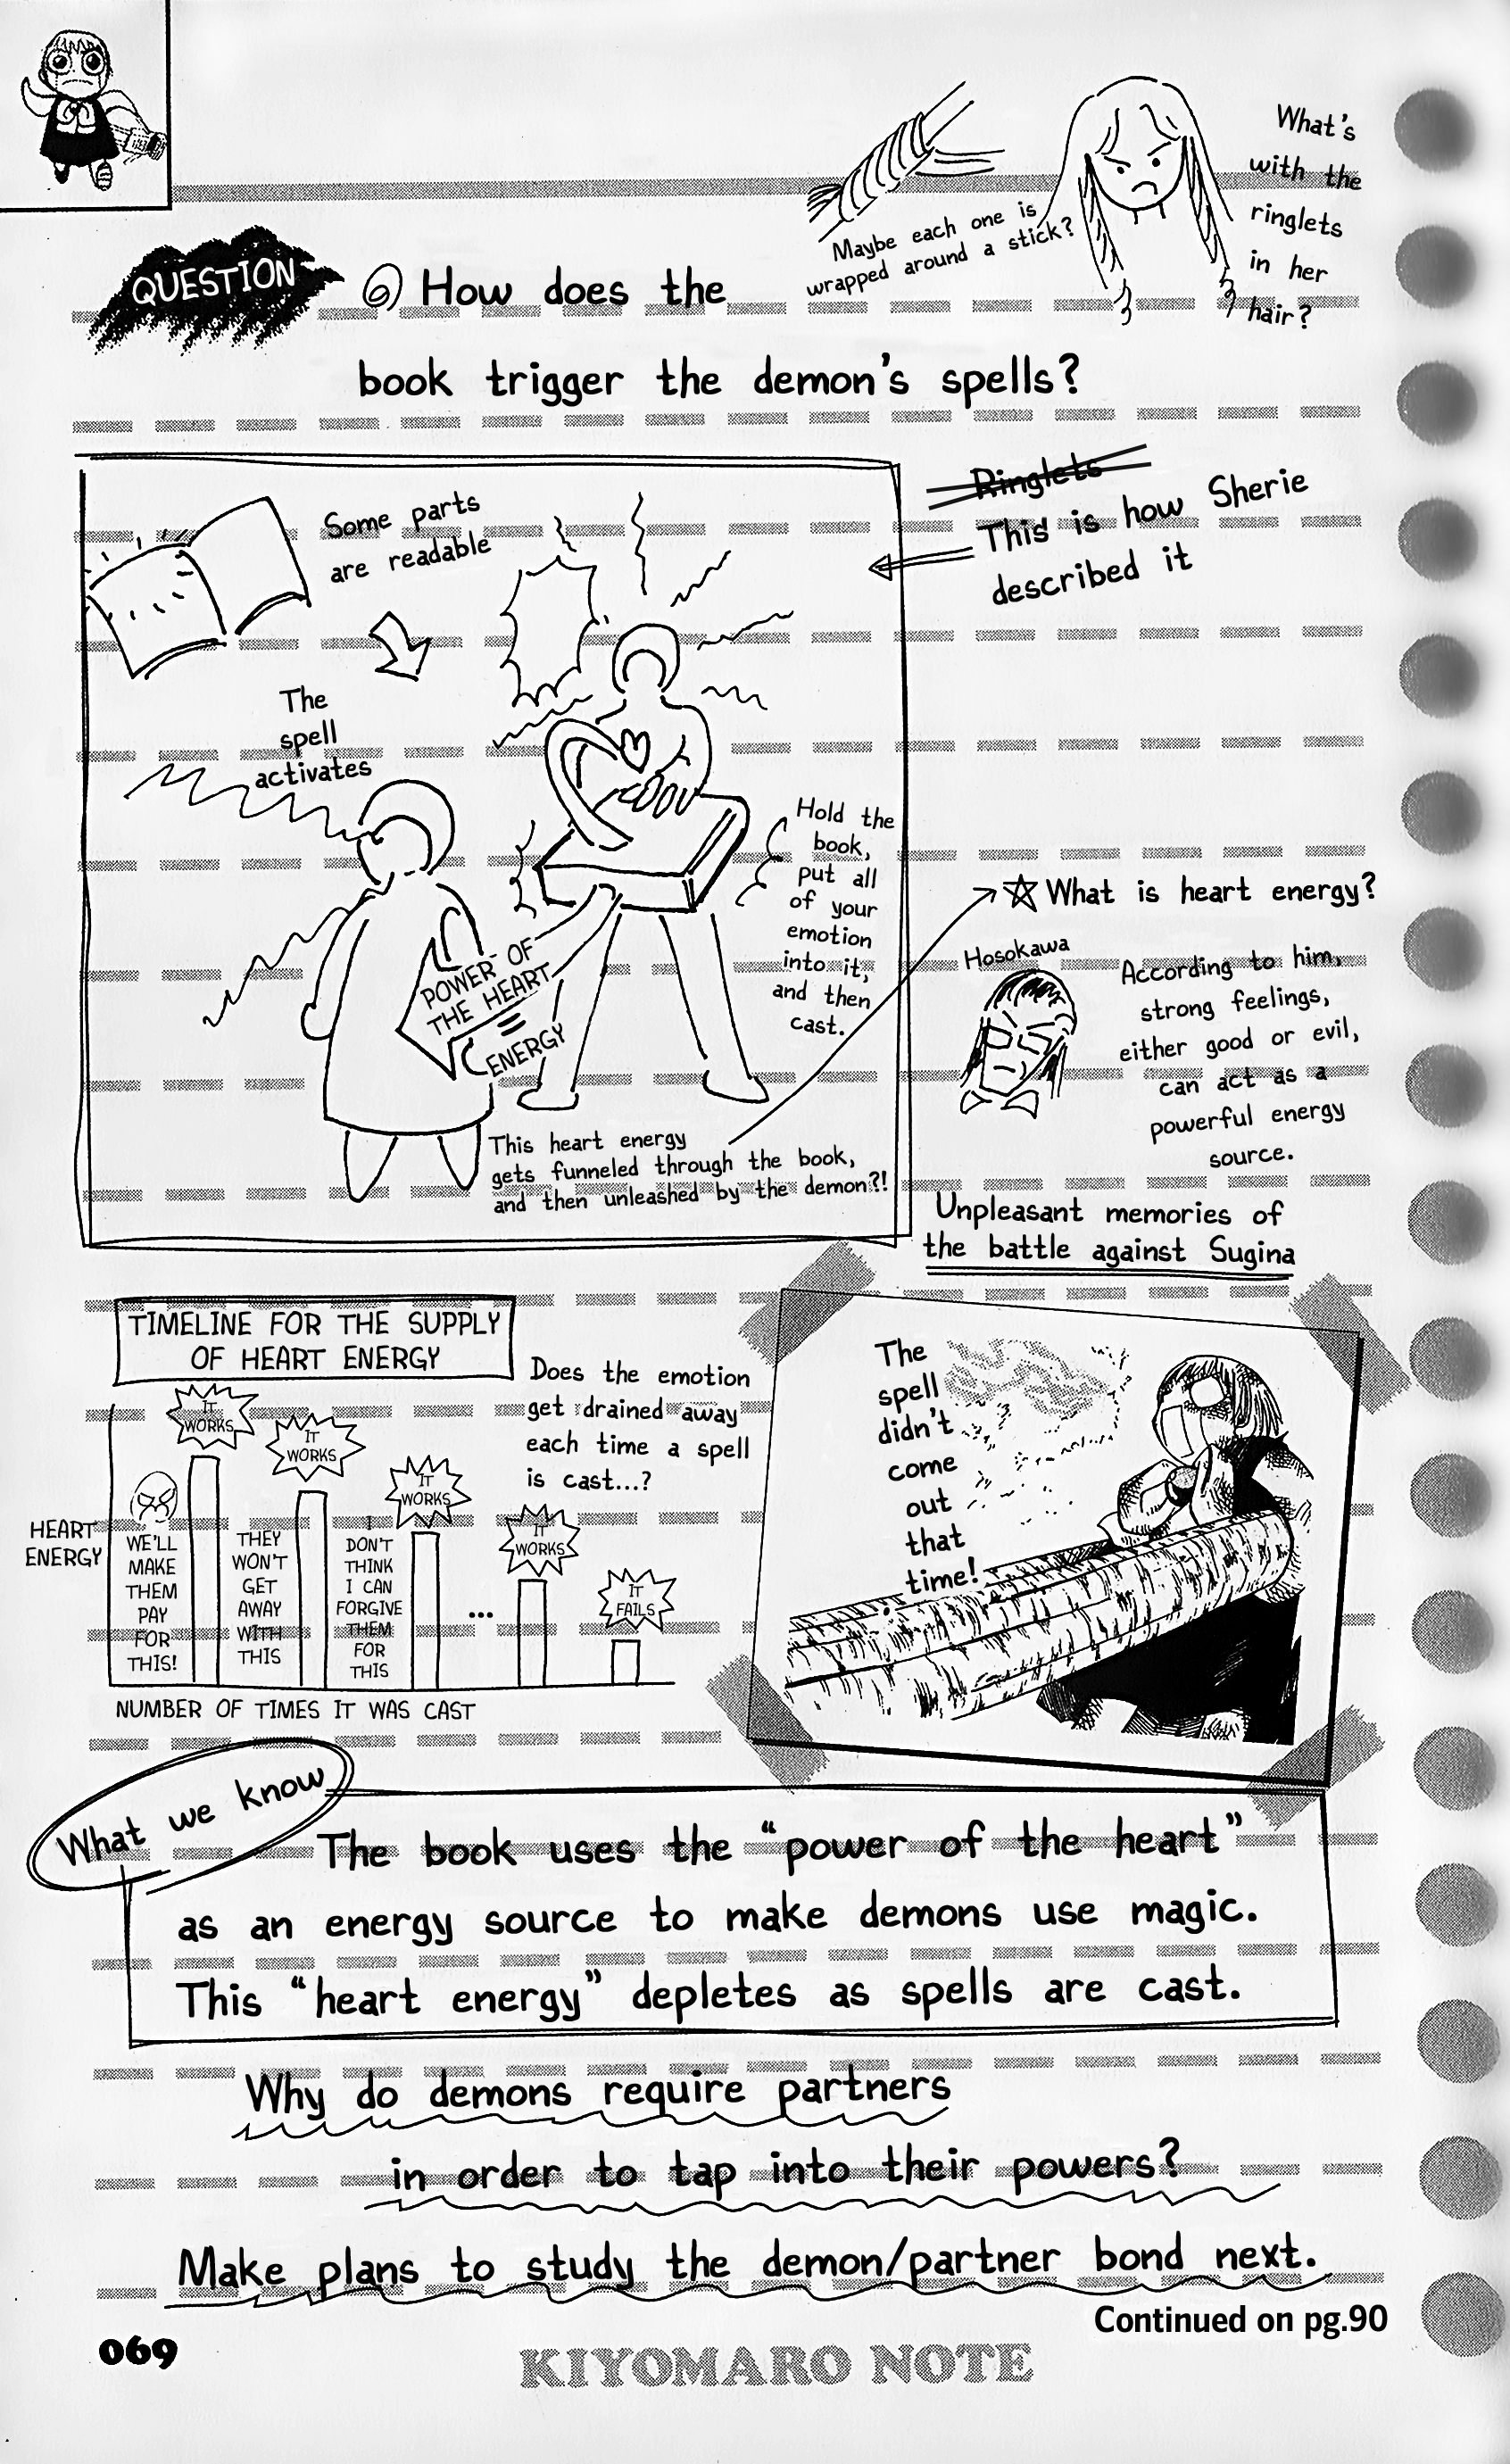 What's
with the
ringlets
in her
hair?
Maybe each one is
wrapped around a stick?
QUESTION
⑥ How does the
book trigger the demon's spells?
Some parts
are readable
The
spell
activates
Hold the
book,
put all
of your
emotion
into it,
and then
cast.
POWER OF
THE HEART
=
ENERGY
This heart energy
gets funneled through the book,
and then unleashed by the demon?!
Ringlets
This is how Sherie
described it
☆ What is heart energy?
Hosokawa
According to him,
strong feelings,
either good or evil,
can act as a
powerful energy
source.
Unpleasant memories of
the battle against Sugina
The
spell
didn't
come
out
that
time!
TIMELINE FOR THE SUPPLY
OF HEART ENERGY
Does the emotion
get drained away
each time a spell
is cast...?
HEART
ENERGY
WE'LL
MAKE
THEM
PAY
FOR
THIS!
IT
WORKS
THEY
WON'T
GET
AWAY
WITH
THIS
IT
WORKS
I
DON'T
THINK
I CAN
FORGIVE
THEM
FOR
THIS
IT
WORKS
...
IT
WORKS
IT
FAILS
NUMBER OF TIMES IT WAS CAST
What we know
The book uses the "power of the heart"
as an energy source to make demons use magic.
This "heart energy" depletes as spells are cast.
Why do demons require partners
in order to tap into their powers?
Make plans to study the demon/partner bond next.
Continued on pg.90
069
KIYOMARO NOTE